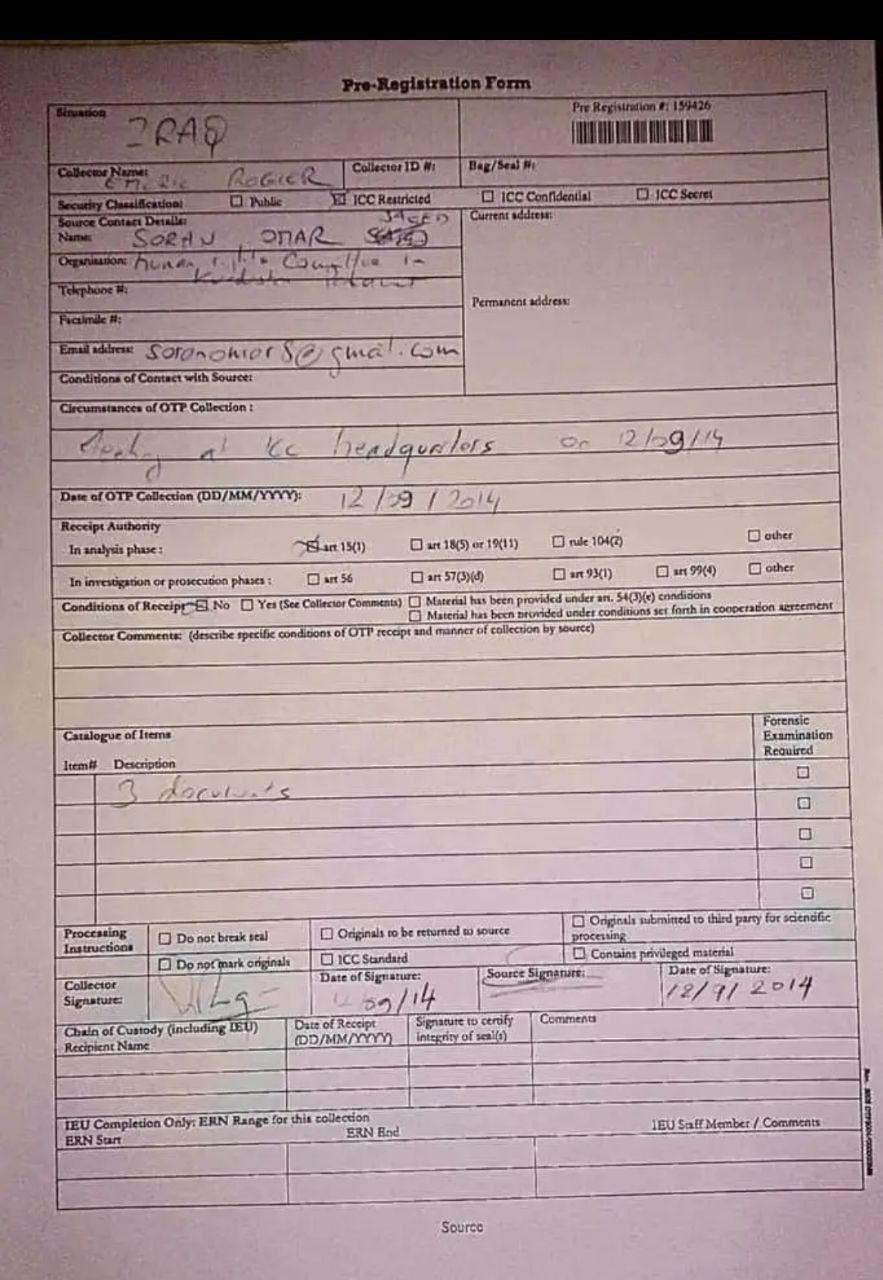 Pre-Registration Form
Situation
IRAQ
Pre Registration #: 159426
Collector Name:
EMERIC ROGIER
Collector ID #:
Bag/Seal #:
Security Classification: ☐ Public ☒ ICC Restricted ☐ ICC Confidential ☐ ICC Secret
Source Contact Details:
Name: SORAN OMAR SAEED
Current address:
Organisation: human rights Committee in
Kurdistan
Telephone #:
Permanent address:
Facsimile #:
Email address: soranomar8@gmail.com
Conditions of Contact with Source:
Circumstances of OTP Collection :
Meeting at ICC headquarters on 12/09/14
Date of OTP Collection (DD/MM/YYYY): 12/09/2014
Receipt Authority
In analysis phase : ☒ art 15(1) ☐ art 18(5) or 19(11) ☐ rule 104(2) ☐ other
In investigation or prosecution phases : ☐ art 56 ☐ art 57(3)(d) ☐ art 93(1) ☐ art 99(4) ☐ other
Conditions of Receipt ☒ No ☐ Yes (See Collector Comments) ☐ Material has been provided under art. 54(3)(e) conditions
☐ Material has been provided under conditions set forth in cooperation agreement
Collector Comments: (describe specific conditions of OTP receipt and manner of collection by source)
Catalogue of Items
Forensic
Examination
Required
Item# Description
3 documents
Processing
Instructions
☐ Do not break seal
☐ Originals to be returned to source
☐ Originals submitted to third party for scientific
processing
☐ Do not mark originals
☐ ICC Standard
☐ Contains privileged material
Collector
Signature:
Date of Signature:
09/14
Source Signature:
Date of Signature:
12/9/2014
Chain of Custody (including IEU)
Recipient Name
Date of Receipt
(DD/MM/YYYY)
Signature to certify
integrity of seal(s)
Comments
IEU Completion Only: ERN Range for this collection
ERN Start
ERN End
IEU Staff Member / Comments
Source